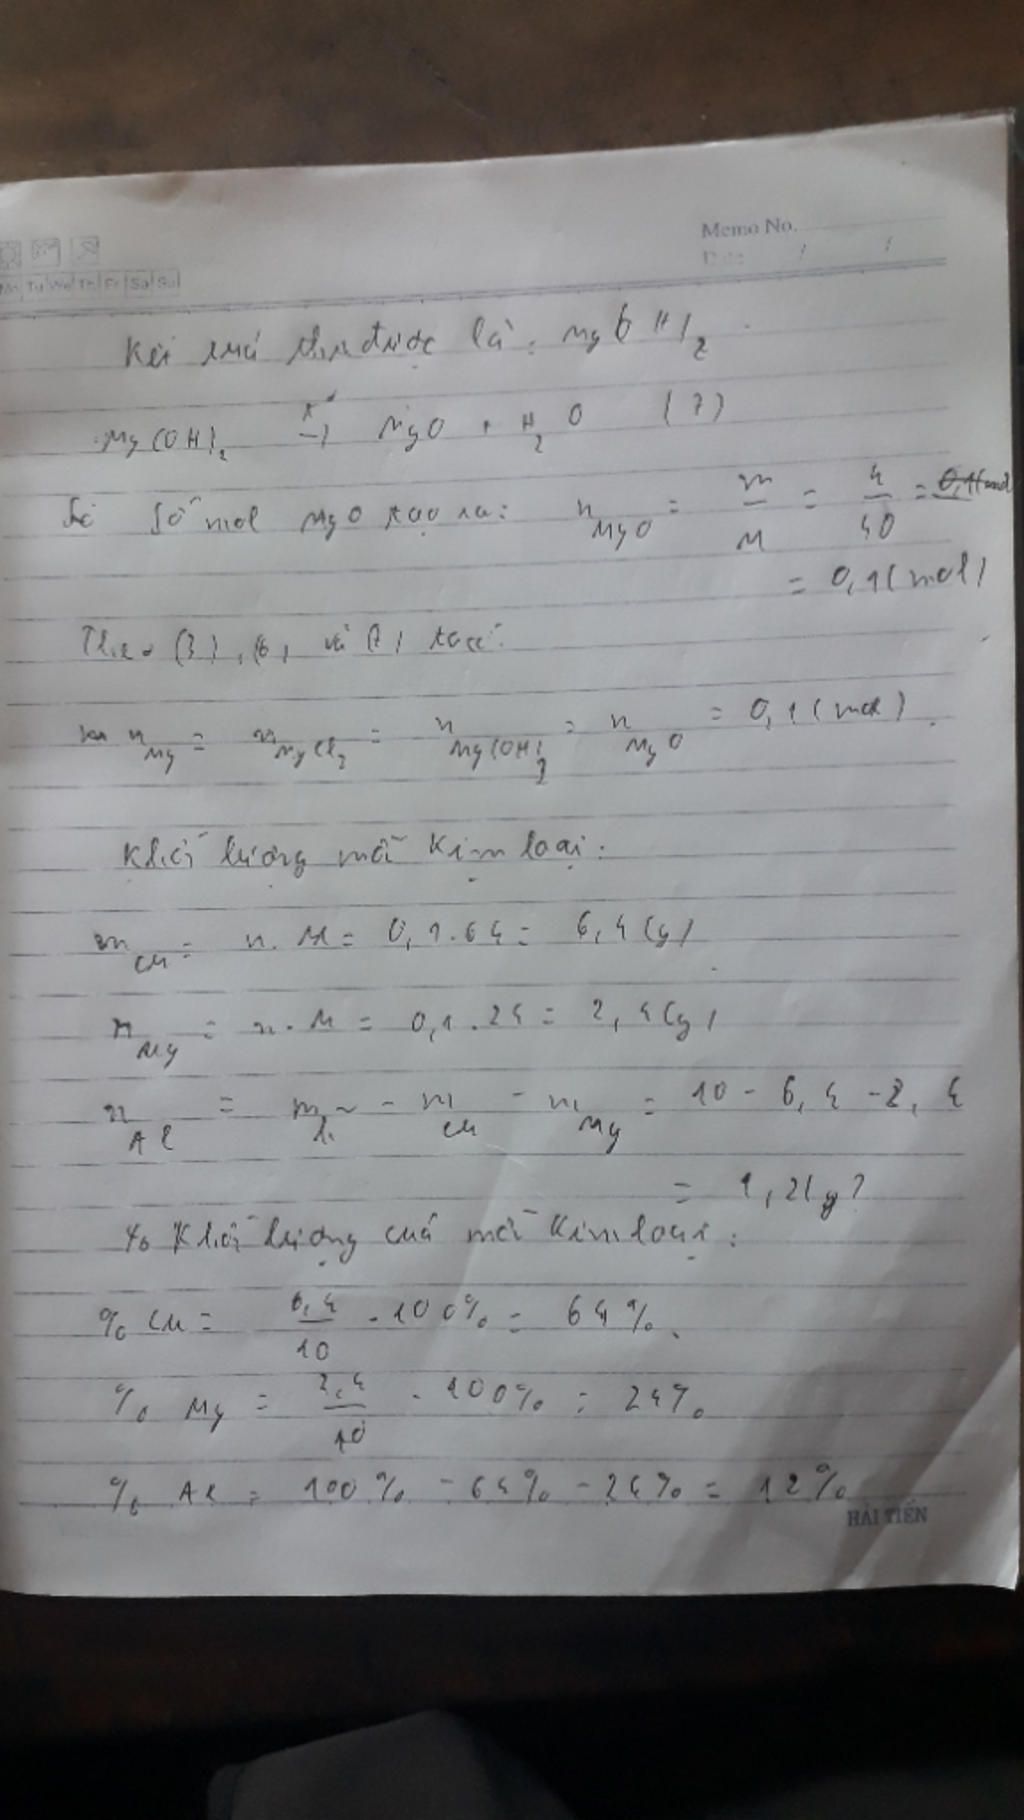 Memo No.
Date / /
Mo Tu We Th Fr Sa Su
Kết quả thu được là: Mg(OH)2
Mg(OH)2 →t° MgO + H2O (7)
Số mol MgO tạo ra: nMgO = m/M = 4/40 = 0,1(mol
= 0,1(mol)
Theo (3), (6, và (7) ta có:
nMg = nMgCl2 = nMg(OH)2 = nMgO = 0,1(mol).
Khối lượng mỗi kim loại:
mCu = n. M = 0,1.64 = 6,4(g)
mMg = n. M = 0,1.24 = 2,4(g)
mAl = m - mCu - mMg = 10 - 6,4 - 2,4
= 1,2(g)
% Khối lượng của mỗi kim loại:
% Cu = 6,4/10 . 100% = 64%.
% Mg = 2,4/10 . 100% = 24%.
% Al = 100% - 64% - 24% = 12%
HẢI TIẾN